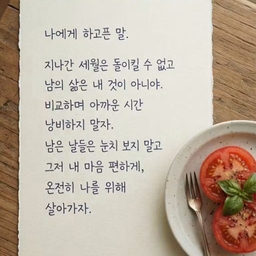 나에게 하고픈 말.
지나간 세월은 돌이킬 수 없고
남의 삶은 내 것이 아니야.
비교하며 아까운 시간
낭비하지 말자.
남은 날들은 눈치 보지 말고
그저 내 마음 편하게,
온전히 나를 위해
살아가자.